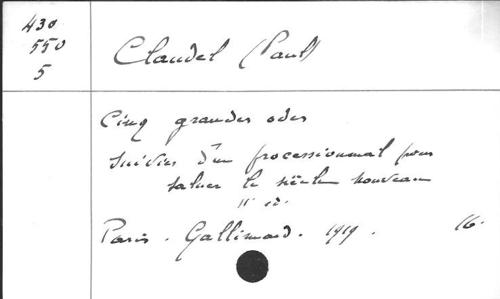 430
550
5
Claudel (Paul)
Cinq grandes odes
suivies d'un processionnal pour
saluer le siècle nouveau
11e éd.
Paris. Gallimard. 1919. 16.